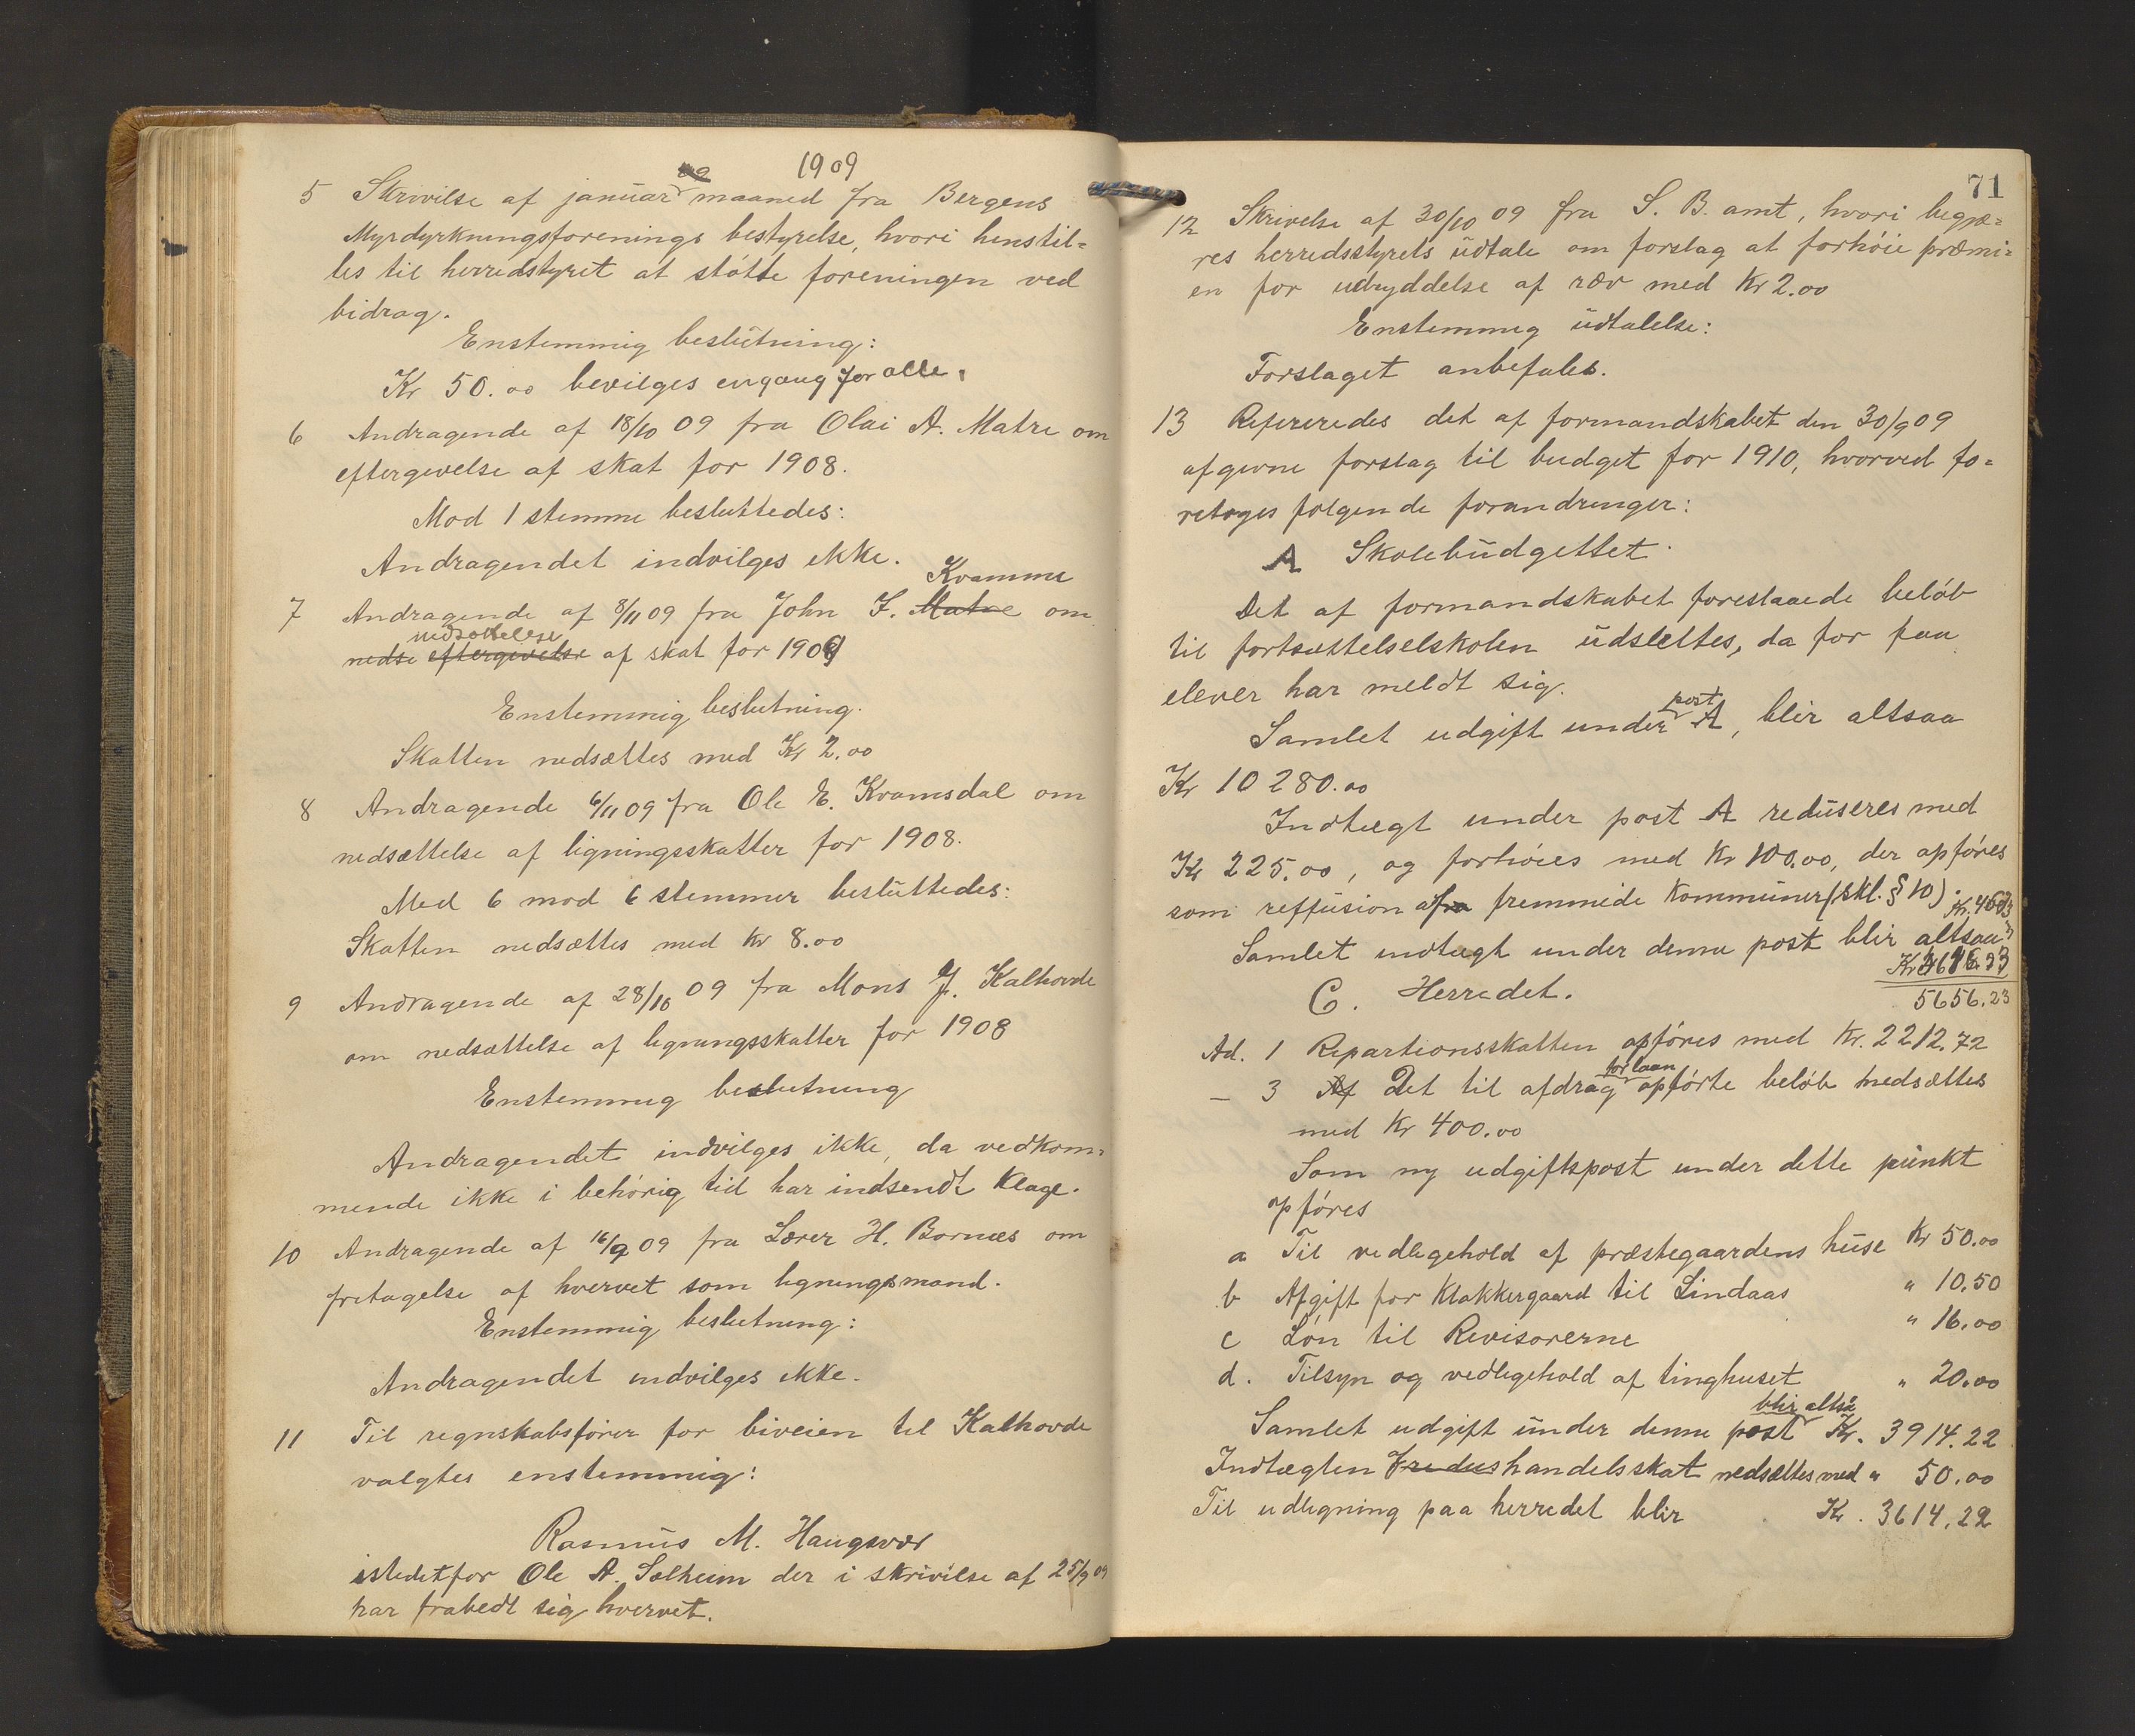 1909
5 Skrivilse af januar maaned fra Bergens
Myrdyrkningsforenings bestyrelse, hvori henstil=
les til herredstyret at støtte foreningen ved
bidrag.
Enstemmig beslutning:
Kr 50.00 bevilges engang for alle.
6 Andragende af 18/10 09 fra Olai A. Matre om
eftergivelse af skat for 1908.
Mod 1 stemme besluttedes:
Andragendet indvilges ikke.
Kvamme
7 Andragende af 8/11 09 fra John J. Matre om
nedsættelse
nedse eftergivelse af skat for 1909
Enstemmig beslutning.
Skatten nedsættes med Kr 2.00
8 Andragende 6/11 09 fra Ole E. Kvamsdal om
nedsættelse af ligningsskatter for 1908.
Med 6 mod 6 stemmer besluttedes:
Skatten nedsættes med kr 8.00
9 Andragende af 28/10 09 fra Mons J. Kalhovde
om nedsættelse af ligningsskatter for 1908
Enstemmig beslutning
Andragendet indvilges ikke, da vedkom=
mende ikke i behørig tid har indsendt klage.
10 Andragende af 16/9 09 fra Lærer H. Bornæs om
fritagelse af hvervet som ligningsmand.
Enstemmig beslutning:
Andragendet indvilges ikke.
11 Til regnskabsfører for biveien til Kalhovde
valgtes enstemmig:
Rasmus M. Haugsvær
istedetfor Ole A. Solheim der i skrivilse af 25/9 09
har frabedt sig hvervet.
71
12 Skrivelse af 30/10 09 fra S. B. amt, hvori begjæ=
res herredsstyrets udtale om forslag at forhøie præmi=
en for udryddelse af ræv med Kr 2.00
Enstemmig udtalelse:
Forslaget anbefales.
13 Refereredes det af formandskabet den 30/9 09
afgivne forslag til budget for 1910, hvorved fo=
retoges følgende forandringer:
A Skolebudgettet.
Det af formandskabet foreslaaede beløb
til fortsættelselskolen udslettes, da for faa
elever har meldt sig.
post
Samlet udgift under A, blir altsaa
Kr 10280.00
Indtægt under post A reduseres med
Kr 225.00, og forhøies med Kr 100.00, der opføres
som reffusion af fremmede kommuner (skl. § 10).
Samlet indtægt under denne post blir altsaa
C. Herredet.
5656.23
Ad. 1 Repartionsskatten opføres med Kr. 2212.72
for laan
— 3 Af Det til afdrag opførte beløb nedsættes
med Kr 400.00
Som ny udgiftspost under dette punkt
opføres
a Til vedligehold af præstegaardens huse Kr 50.00
b Afgift for Klakkergaard til Lindaas " 10.50
c Løn til Revisorerne " 16.00
d. Tilsyn og vedligehold af tinghuset " 20.00
blir altså
Samlet udgift under denne post Kr. 3914.22
Indtægten handelsskat nedsættes med " 50.00
Til udligning paa herredet blir Kr. 3614.22